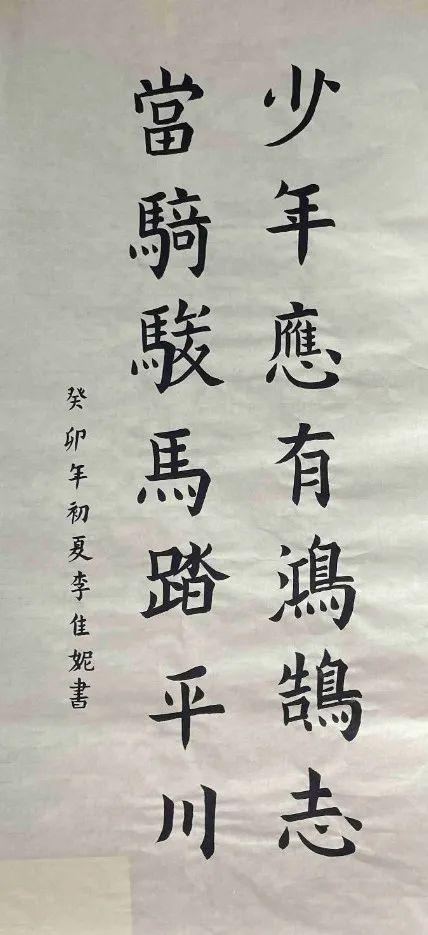 少年應有鴻鵠志
當騎駿馬踏平川
癸卯年初夏李佳妮書